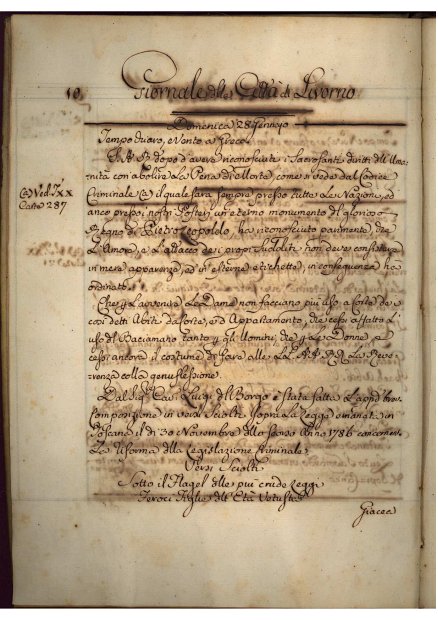 10.
Giornale della Città di Livorno
Domenica 28 Gennajo
Tempo Vario, e Vento a Greco.
S. A. R. dopo d'avere riconosciuti i Sacrosanti diritti dell'Uma-
nità con abolire La Pena di Morte, come si vede dal Codice
(a) Ved. XX
Carte 287
Criminale (a) il quale sarà sempre presso tutte Le Nazioni, ed
anco presso i nostri Posteri un eterno monumento di glorioso
Regno di Pietro Leopoldo, ha riconosciuto parimente, che
L'Amore, e L'attacco dei propri Sudditi non deve consistere
in mera apparenza, ed in esterne etichette, in conseguenza ha
ordinato
Che per l'avvenire Le Dame non facciano più uso a Corte de i
così detti Abiti da Corte, o d'Appartamento, che cessi affatto L'
uso del Baciamano tanto per gli Uomini, che per Le Donne, e
cessi ancora il costume di fare alle LL. AA. RR. La Reve-
renza colla genuflessione.
Dal Sig. Cav. Luigi del Borgo è stata fatta La appié
composizione in Versi Sciolti sopra La Legge emanata in
Toscana il dì 30 Novembre dello scorso Anno 1786 concernen-
te La Riforma della Legislazione Criminale
Versi Sciolti
Sotto il Flagel delle più crude Leggi
Feroci Figlie dell'Età Vetuste
Giacea